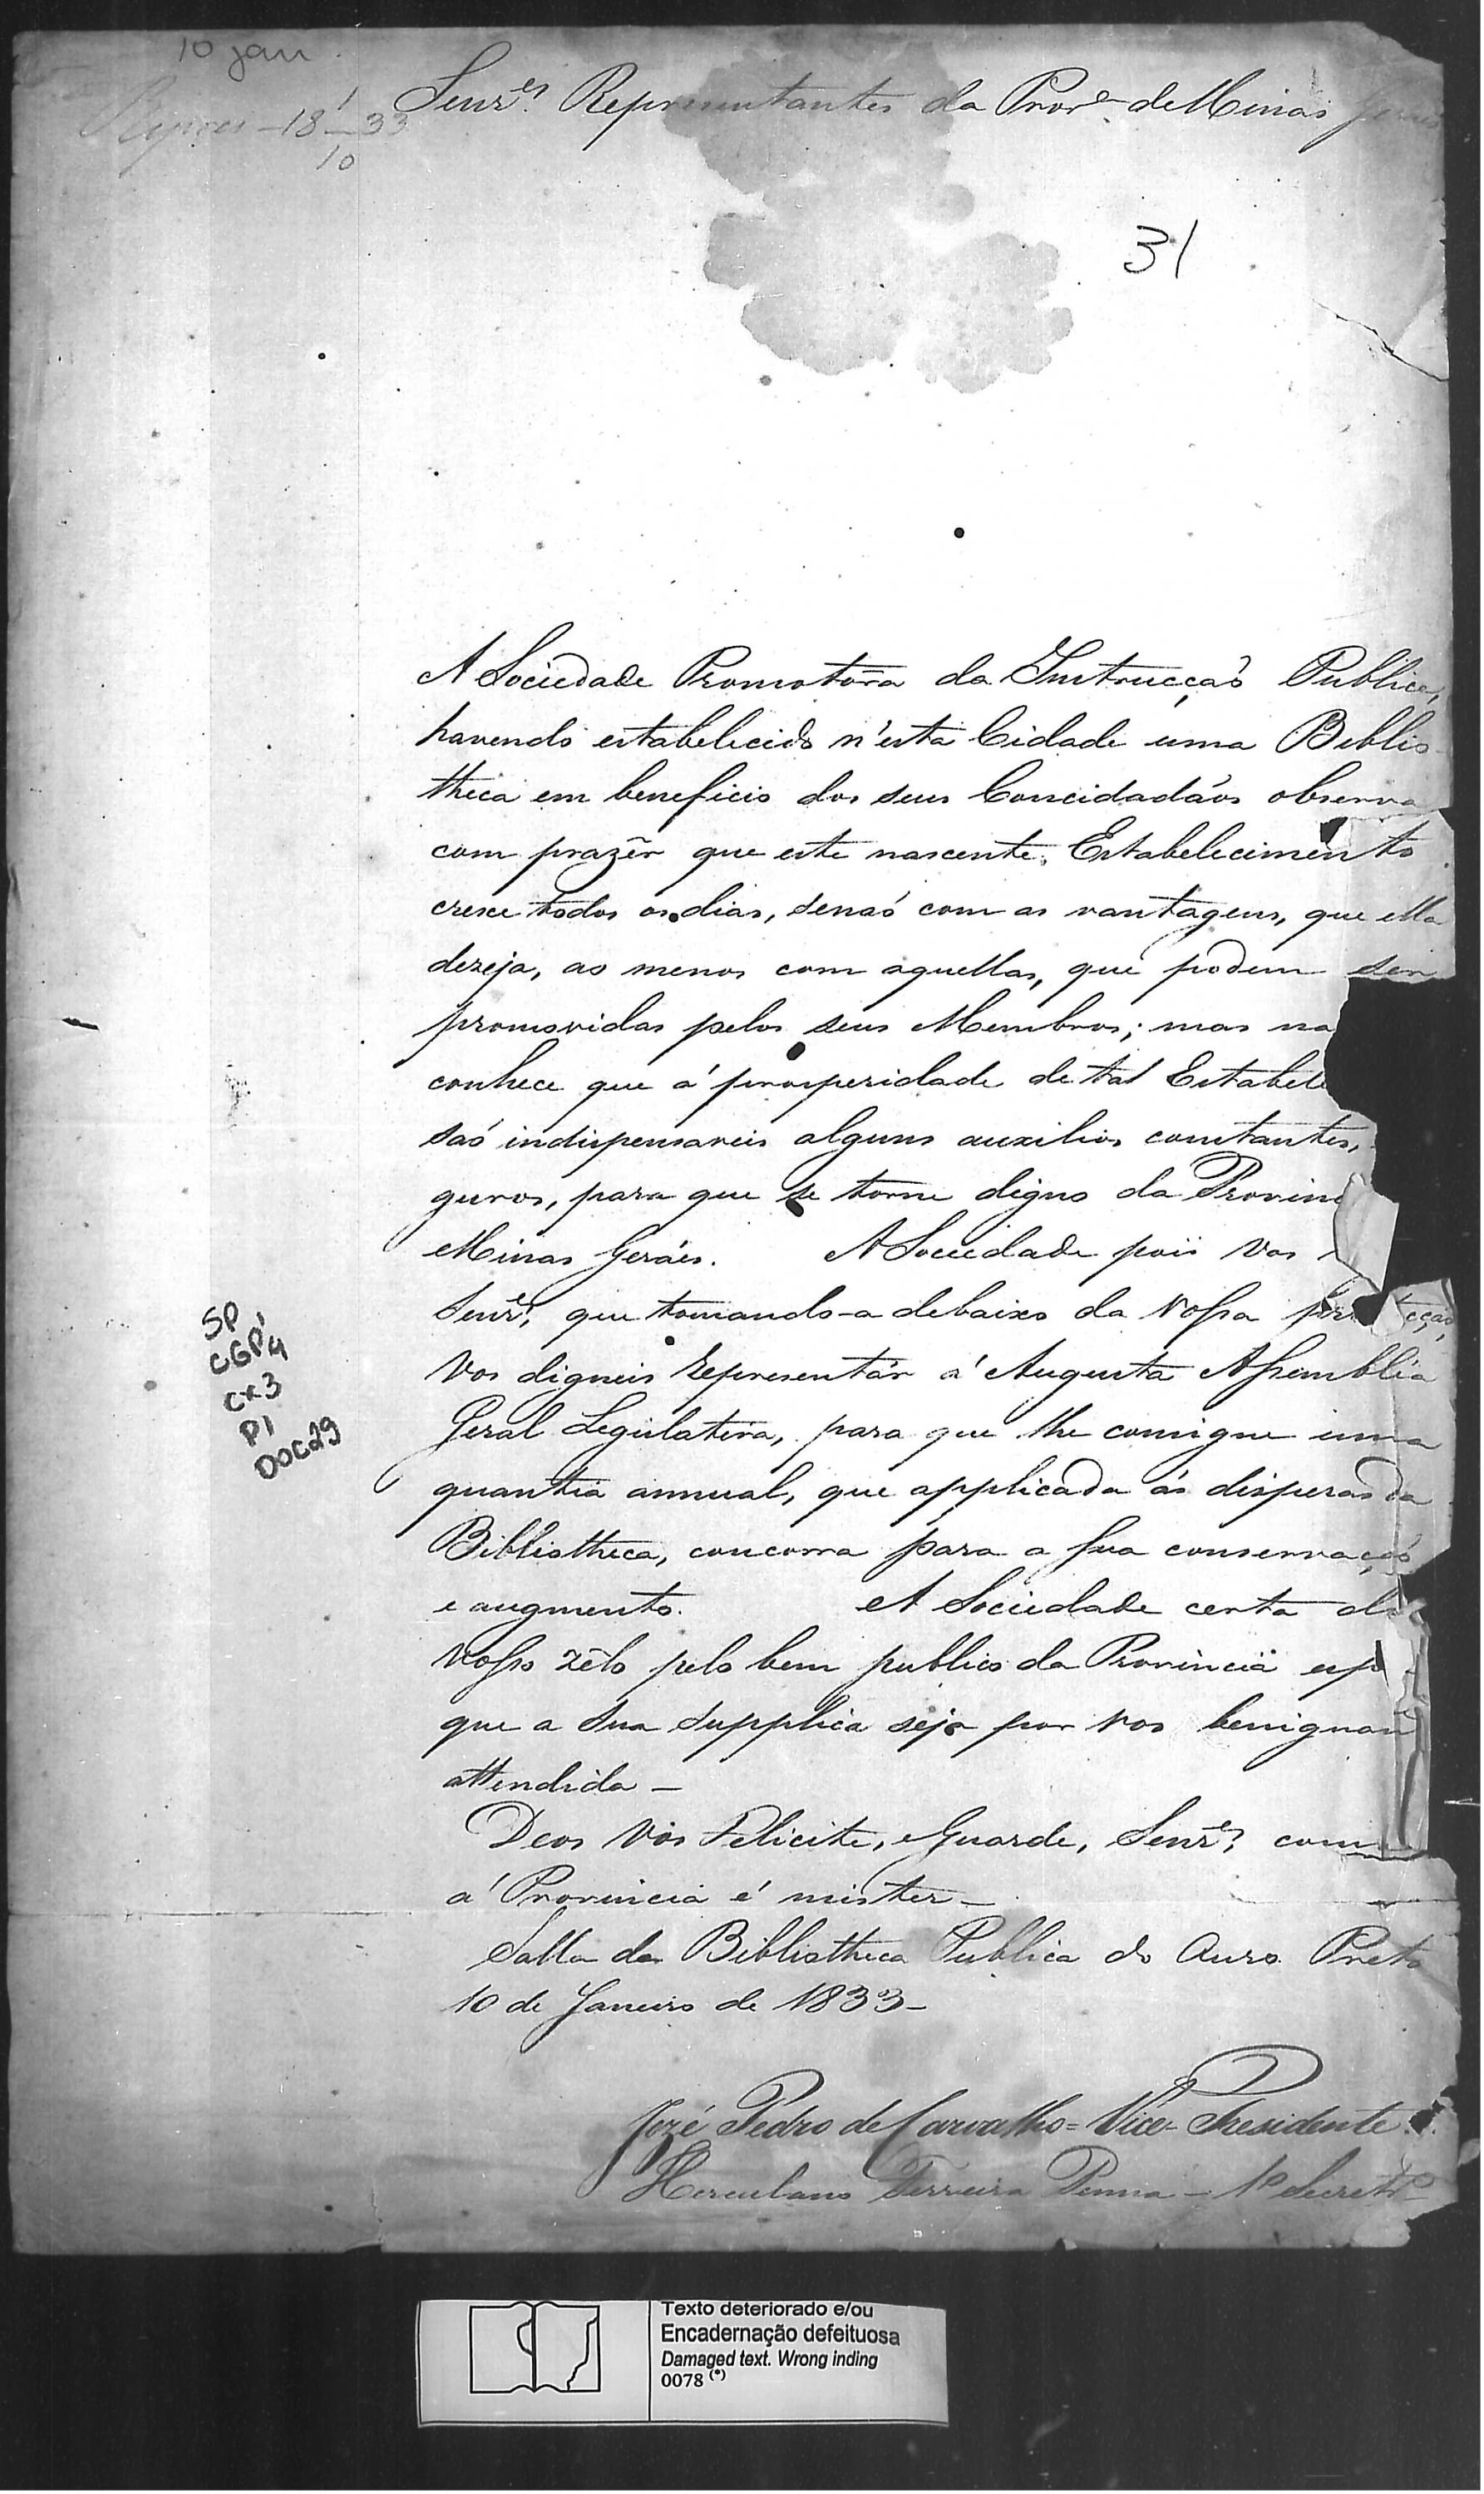 10 jan
Senr.es Representantes da Prov.a de Minas Geraes
18 1/10 33
31
A Sociedade Promotôra da Instrucçaõ Publica,
havendo estabelecido n'esta Cidade uma Biblio
theca em beneficio dos seus Concidadáos observa
com prazêr que este nascente Estabelecimento
cresce todos os dias, senaõ com as vantagens, que ella
dezeja, ao menos com aquellas, que podem ser
promovidas pelos seus Membros; mas
conhece que á prosperidade de tal Estabele
saõ indispensaveis alguns auxilios constantes,
guros, para que se torne digno da Provinc
Minas Geráes. A Sociedade pois Vos
Senr.es, que tomando-a debaixo da Vossa protecçaõ,
Vos digneis representár á Augusta Assemblea
Geral Legislativa, para que lhe consigne uma
quantia annual, que applicada ás despesas da
Bibliotheca, concorra para a sua conservaçaõ
e augmento. A Sociedade certa do
Vosso zêlo pelo bem publico da Provincia esp
que a sua supplica seja por Vos benignam
attendida —
Deos Vos Felicite, e Guarde, Senr.es, como
á Provincia é mister —
Salla da Bibliotheca Publica do Ouro Preto
10 de Janeiro de 1833 —
Jozé Pedro de Carvalho = Vice-Presidente.
Herculano Ferreira Penna — 1º Secret.º
SP
CGP1
cx3
P1
DOC29
Texto deteriorado e/ou
Encadernação defeituosa
Damaged text. Wrong inding
0078 (*)